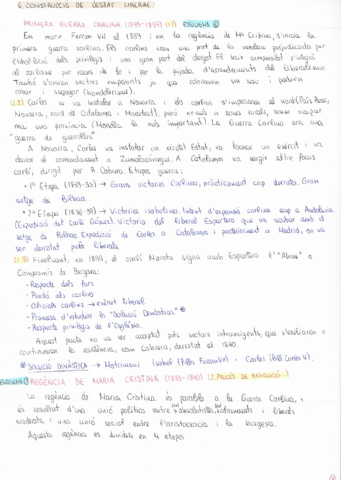 6. CONSTRUCCIÓ DE L'ESTAT LIBERAL
PRIMERA GUERRA CARLINA (1833-1839) (1.1) ESQUEMA
En morir Ferran VII al 1833 i en la regència de Mª Cristina, s'inicia la
primera guerra carlina. Els carlins eren una part de la noblesa perjudicada per
l'abolició dels privilegis i una gran part del clergat. El baix camperolat s'integrà
al carlisme per raons de fe i per la pujada d'arrendaments del liberalisme.
També s'uniren sectors marginats ja que cobraven un sou i podien
robar i saquejar (bandolerisme).
(1.2) Carles es va instal·lar a Navarra i els carlins s'imposaren al nord (País Basc,
Navarra, nord de Catalunya i Maestrat), però només a zones rurals, sense ocupar
mai una província (Morella la més important). La Guerra Carlina era una
"guerra de guerrilles"
A Navarra, Carles va instal·lar un Estat, va formar un exèrcit i va
donar el comandament a Zumalacárregui. A Catalunya va sorgir altre focus
carlí, dirigit per R. Cabrera. Etapes guerra:
• 1ª Etapa (1833-35) → Grans victòries Carlines, pràcticament cap derrota. Gran
setge de Bilbao.
• 2ª Etapa (1836-39) → Victòries isabelines, Intent d'expansió carlina cap a Andalusia
(Expedició del Gómez). Victòria del liberal Espartero que va acabar amb el
setge de Bilbao. Expedició de Carles a Catalunya i posteriorment a Madrid, on va
ser derrotat pels liberals.
(1.3) Finalment, en 1839, el carlí Maroto signa amb Espartero l'"Abraç" o
Compromís de Bergara:
- Respecte dels furs
- Perdó als carlins
- Oficials carlins → exèrcit liberal.
- Promesa d'estudiar la "Solució Dinàstica" *
- Respecte privilegis de l'Església.
Aquest pacte no va ser acceptat pels sectors intransigents, que s'exiliaren o
continuaren la resistència, com Cabrera, derrotat el 1840.
* SOLUCIÓ DINÀSTICA → Matrimoni Isabel (filla Ferran VII) - Carles (fill Carles V).
ESQUEMA REGÈNCIA DE MARIA CRISTINA (1833-1840) (2. PROCÉS DE REVOLUCIÓ...)
La regència de Maria Cristina és paral·lela a la Guerra Carlina, i
és resultat d'una unió política entre absolutistes reformistes i liberals
moderats, i una unió social entre l'aristocràcia i la burgesia.
Aquesta regència es divideix en 4 etapes